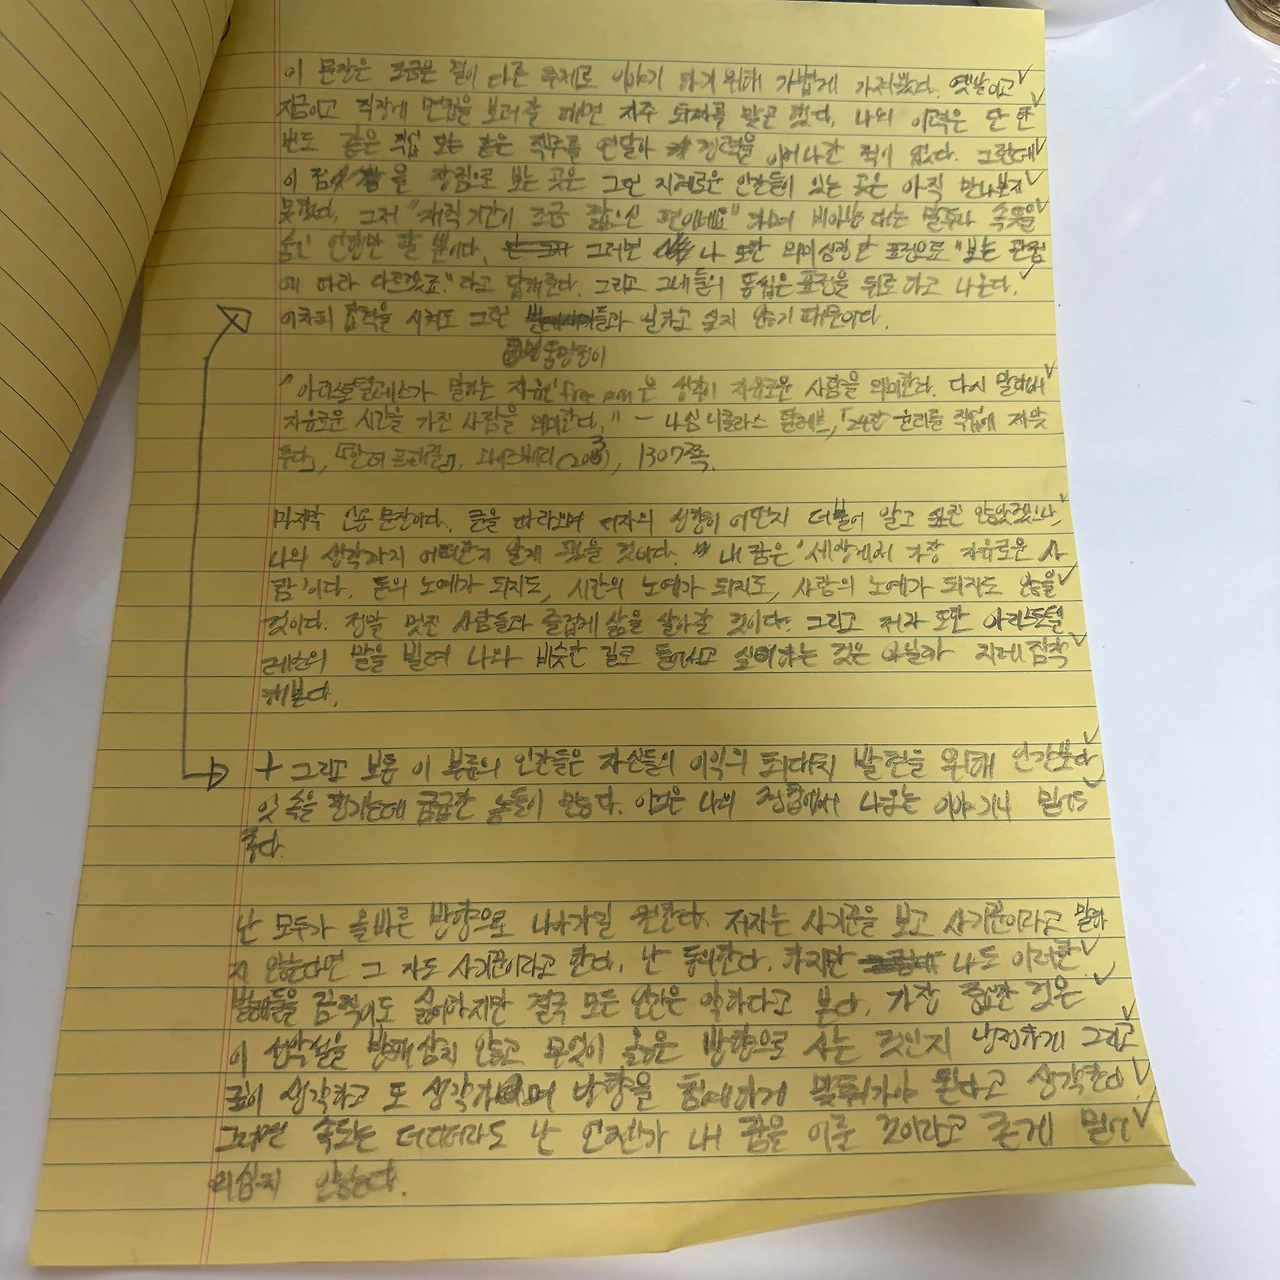 이 문장은 조금은 결이 다른 주제로 이야기 하기 위해 가볍게 가져왔다. 옛날이고
지금이고 직장에 면접을 보러갈 때면 자주 퇴짜를 맞곤 했다. 나의 이력은 단 한
번도 같은 직업 또는 같은 직무를 연달아 경력을 이어나간 적이 없다. 그런데
이 점을 장점으로 보는 곳은 그런 지혜로운 인간들이 있는 곳은 아직 만나보지
못했다. 그저 "재직 기간이 조금 짧으신 편이네요" 라며 비아냥 대는 말투나 속뜻을
숨긴 언행만 할 뿐이다. 그러면 나 또한 의미심장한 표정으로 "보는 관점
에 따라 다르겠죠." 라고 답해준다. 그리고 그네들의 똥씹은 표정을 뒤로 하고 나온다.
어차피 합격을 시켜도 그런 들과 일하고 싶지 않기 때문이다.
"아리스토텔레스가 말하는 자유인 free man은 생각이 자유로운 사람을 의미한다. 다시 말해
자유로운 시간을 가진 사람을 의미한다." - 나심 니콜라스 탈레브, 「24장 윤리를 직업에 끼워
맞추다」, 『안티프래질』, 와이즈베리(2013), 1307쪽.
마지막 인용 문장이다. 글을 따라오며 저자의 성향이 어떤지 더불어 알고 싶진 않았겠으나,
나의 생각까지 어떠한지 알게 됐을 것이다. 내 꿈은 '세상에서 가장 자유로운 사
람'이다. 돈의 노예가 되지도, 시간의 노예가 되지도, 사람의 노예가 되지도 않을
것이다. 정말 멋진 사람들과 즐겁게 삶을 살아갈 것이다. 그리고 저자 또한 아리스토텔
레스의 말을 빌려 나와 비슷한 길로 들어서고 싶어하는 것은 아닐까 지레짐작
해본다.
+ 그리고 보통 이 부류의 인간들은 자신들의 이익의 최대치 발현을 위해 인간보다
잇속을 챙기는데 급급한 놈들이 많다. 이것은 나의 경험에서 나오는 이야기니 믿어도
좋다.
난 모두가 올바른 방향으로 나아가길 원한다. 저자는 사기꾼을 보고 사기꾼이라고 말하
지 않는다면 그 자도 사기꾼이라고 한다. 난 동의한다. 하지만 나도 이러한
벌레들을 끔찍이도 싫어하지만 결국 모든 인간은 악하다고 본다. 가장 중요한 것은
이 선악설을 방패삼지 않고 무엇이 옳은 방향으로 사는 것인지 냉정하게 그리고
깊이 생각하고 또 생각하며 방향을 첨예하게 맞춰가야 된다고 생각한다.
그러면 속도는 더디더라도 난 언젠가 내 꿈을 이룰 것이라고 굳게 믿어
의심치 않는다.